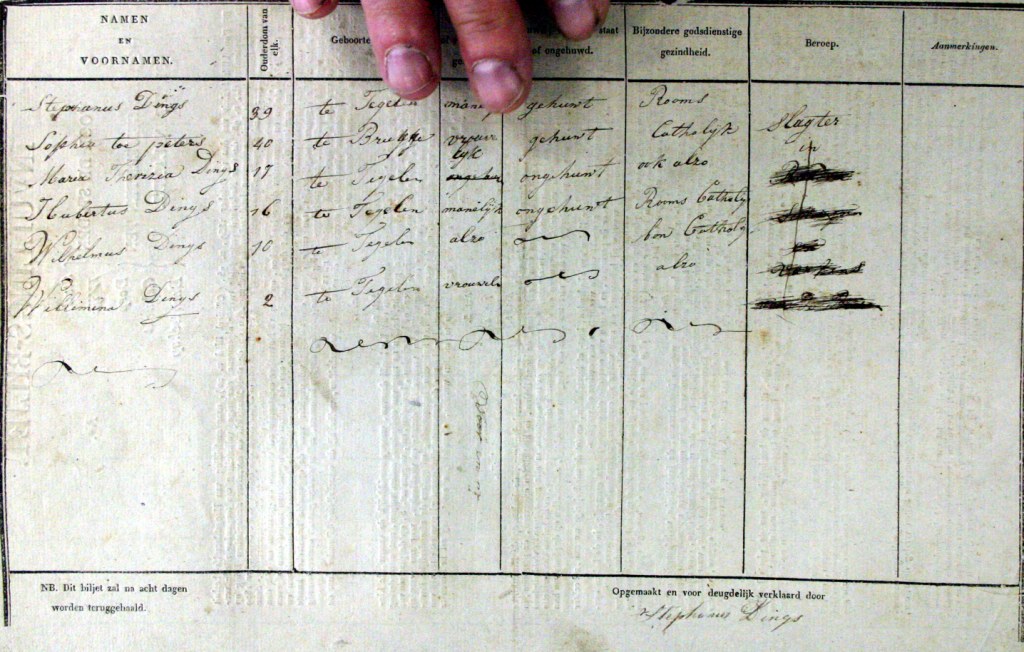 NAMEN EN VOORNAMEN. Ouderdom van elk. Geboorte staat of ongehuwd. Bijzondere godsdienstige gezindheid. Beroep. Aanmerkingen.
Stephanus Dings 39 te Tegelen gehuwt Rooms
Sophia toe peters 40 te Brugge vrouw lyk gehuwt Catholyk Slagter
Maria Therezia Dings 17 te Tegelen ongehuwt ook alzo in
Hubertus Dings 16 te Tegelen manlyk ongehuwt Rooms Catholy
Wilhelmus Dings 10 te Tegelen alzo Catholy
Willimina Dings 2 te Tegelen vrouwelk alzo
NB. Dit biljet zal na acht dagen
worden teruggehaald.
Opgemaakt en voor deugdelijk verklaard door
Stephanus Dings